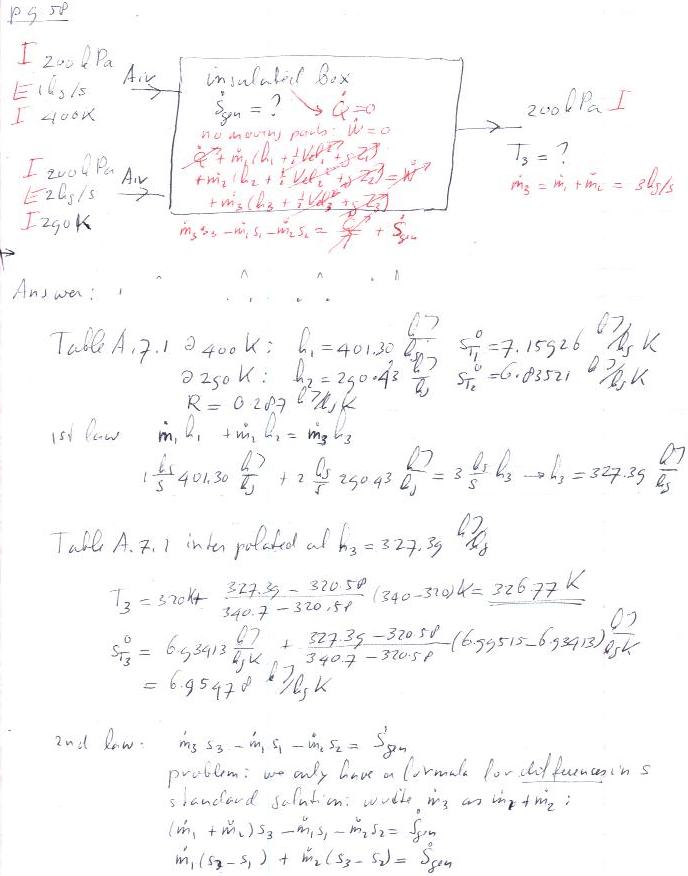 pg 58
I 200kPa
E 1kg/s
I 400K
Air
insulated box
Ṡgen = ?
Q̇=0
no moving parts: Ẇ=0
Q̇ + ṁ1(h1 + ½Vel1² + gZ1)
+ṁ2(h2 + ½Vel2² + gZ2) = Ẇ
+ṁ3(h3 + ½Vel3² + gZ3)
ṁ3s3 - ṁ1s1 - ṁ2s2 = Q̇/T + Ṡgen
200kPa I
T3 = ?
ṁ3 = ṁ1 + ṁ2 = 3kg/s
I 200kPa
E 2kg/s
I 290K
Air
Answer:
Table A.7.1 @ 400K: h1 = 401.30 kJ/kg s°T1 = 7.15926 kJ/kg K
@ 290K: h2 = 290.43 kJ/kg s°T2 = 6.83521 kJ/kg K
R = 0.287 kJ/kg K
1st law ṁ1h1 + ṁ2h2 = ṁ3h3
1 kg/s 401.30 kJ/kg + 2 kg/s 290.43 kJ/kg = 3 kg/s h3 → h3 = 327.39 kJ/kg
Table A.7.1 interpolated at h3 = 327.39 kJ/kg
T3 = 320K + (327.39 - 320.58)/(340.7 - 320.58) (340-320)K = 326.77 K
s°T3 = 6.93413 kJ/kg K + (327.39 - 320.58)/(340.7 - 320.58) (6.99515 - 6.93413) kJ/kg K
= 6.95478 kJ/kg K
2nd law: ṁ3s3 - ṁ1s1 - ṁ2s2 = Ṡgen
problem: we only have a formula for differences in s
standard solution: write ṁ3 as ṁ1+ṁ2:
(ṁ1 + ṁ2)s3 - ṁ1s1 - ṁ2s2 = Ṡgen
ṁ1(s3 - s1) + ṁ2(s3 - s2) = Ṡgen